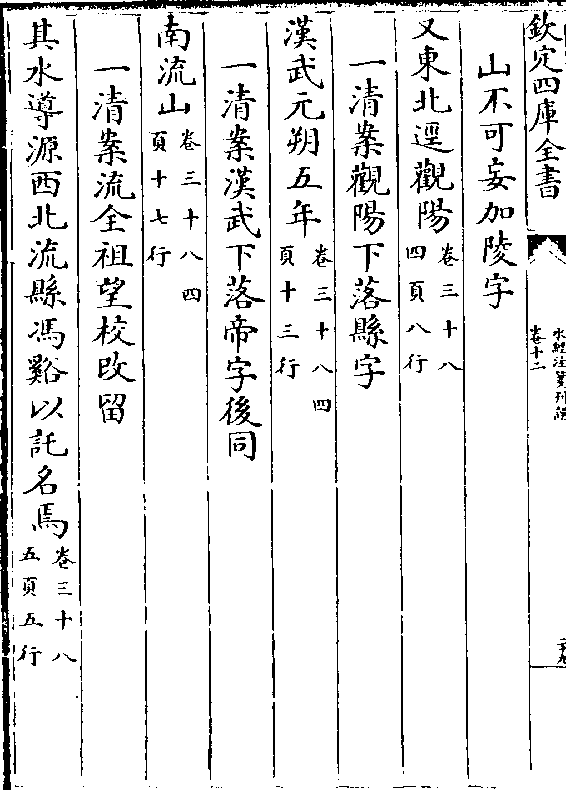 欽定四庫全書
水經注箋刊誤
卷十二
山不可妄加陵字
又東北逕觀陽卷三十八
四頁八行
一清案觀陽下落縣字
漢武元朔五年卷三十八四
頁十三行
一清案漢武下落帝字後同
南流山卷三十八四
頁十七行
一清案流全祖望校改留
其水導源西北流縣馮谿以託名焉卷三十八
五頁五行